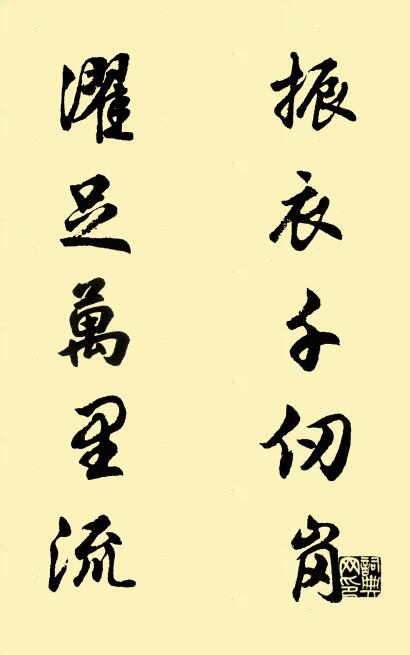 振衣千仞岗
濯足萬里流
词典网印